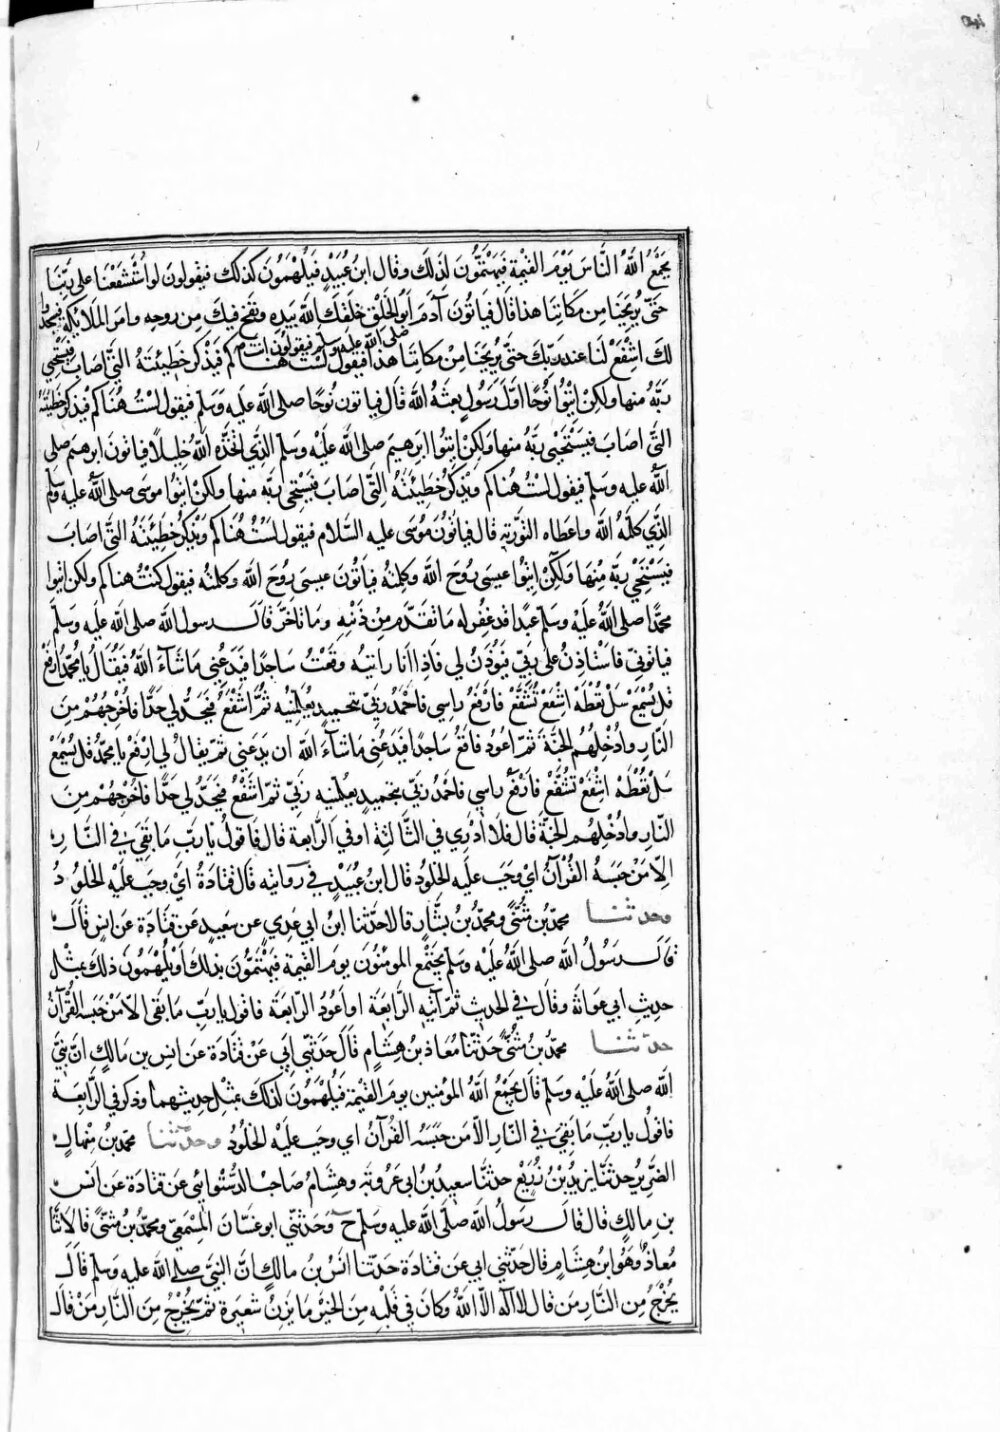 يجمع الله الناس يوم القيمة فيهتمون لذلك وقال ابن عبيد فيلهمون كذلك فيقولون لو استشفعنا على ربنا
حتى يريحنا من مكاننا هذا قال فياتون آدم ابو الخلق خلقك الله بيده ونفخ فيك من روحه وامر الملائكة فسجدوا
صلى الله عليه وسلم فيقولون انت
لك اشفع لنا عند ربك حتى يريحنا من مكاننا هذا فيقول لست هناكم فيذكر خطيئته التي اصاب فيستحيي
ربه منها ولكن ايتوا نوحا اول رسول بعثه الله قال فياتون نوحا صلى الله عليه وسلم فيقول لست هناكم فيذكر خطيئته
التي اصاب فيستحيي ربه منها ولكن ايتوا ابرهيم صلى الله عليه وسلم الذي اتخذه الله خليلا فياتون ابرهيم صلى
الله عليه وسلم فيقول لست هناكم ويذكر خطيئته التي اصاب فيستحي ربه منها ولكن ايتوا موسى صلى الله عليه وسلم
الذي كلمه الله واعطاه التورية قال فياتون موسى عليه السلام فيقول لست هناكم ويذكر خطيئته التي اصاب
فيستحيي ربه منها ولكن ايتوا عيسى روح الله وكلمته فياتون عيسى روح الله وكلمته فيقول لست هناكم ولكن ايتوا
محمدا صلى الله عليه وسلم عبدا قد غفر له ما تقدم من ذنبه وما تاخر قال رسول الله صلى الله عليه وسلم
فياتوني فاستاذن على ربي فيؤذن لي فاذا انا رايته وقعت ساجدا فيدعني ما شاء الله فيقال يا محمد ارفع
قل تسمع سل تعطه اشفع تشفع فارفع راسي فاحمد ربي بتحميد يعلمنيه ثم اشفع فيحد لي حدا فاخرجهم من
النار وادخلهم الجنة ثم اعود فاقع ساجدا فيدعني ما شاء الله ان يدعني ثم يقال لي ارفع يا محمد قل تسمع
سل تعطه اشفع تشفع فارفع راسي فاحمد ربي بتحميد يعلمنيه ربي ثم اشفع فيحد لي حدا فاخرجهم من
النار وادخلهم الجنة قال فلا ادري في الثالثة او في الرابعة قال فاقول يا رب ما بقي في النار
الا من حبسه القرآن اي وجب عليه الخلود قال ابن عبيد في روايته قال قتادة اي وجب عليه الخلود
وحدثنا محمد بن مثنى ومحمد بن بشار قالا حدثنا ابن ابي عدي عن سعيد عن قتادة عن انس قال
قال رسول الله صلى الله عليه وسلم يجتمع المؤمنون يوم القيمة فيهتمون بذلك او يلهمون ذلك بمثل
حديث ابي عوانة وقال في الحديث ثم آتيه الرابعة او اعود الرابعة فاقول يا رب ما بقي الا من حبسه القرآن
حدثنا محمد بن مثنى حدثنا معاذ بن هشام قال حدثني ابي عن قتادة عن انس بن مالك ان نبي
الله صلى الله عليه وسلم قال يجمع الله المؤمنين يوم القيمة فيلهمون لذلك بمثل حديثهما وذكر في الرابعة
فاقول يا رب ما بقي في النار الا من حبسه القرآن اي وجب عليه الخلود وحدثنا محمد بن منهال
الضرير حدثنا يزيد بن زريع حدثنا سعيد بن ابي عروبة وهشام صاحب الدستوائي عن قتادة عن انس
بن مالك قال قال رسول الله صلى الله عليه وسلم ح وحدثني ابو غسان المسمعي ومحمد بن مثنى قالا ثنا
معاذ وهو ابن هشام قال حدثني ابي عن قتادة حدثنا انس بن مالك ان النبي صلى الله عليه وسلم قال
يخرج من النار من قال لا اله الا الله وكان في قلبه من الخير ما يزن شعيرة ثم يخرج من النار من قال